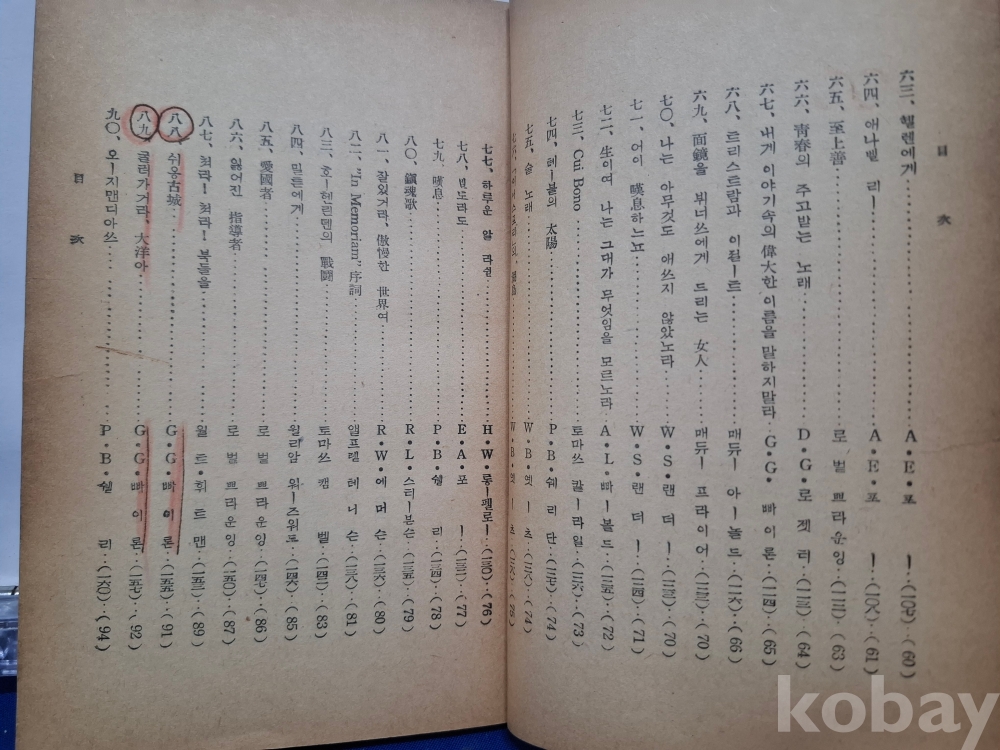 目次
六三、헬렌에게 A•E•포ー (一〇七) (60)
六四、애나벨 리ー A•E•포ー (一〇八) (61)
六五、至上善 로벌 쁘라운잉 (63)
六六、靑春의 주고받는 노래 D•G•로젯터 (64)
六七、내게 이야기속의 偉大한 이름을 말하지말라 G•G•빠이론 (65)
六八、트리스트람과 이죌ー트 매듀ー 아ー놀드 (66)
六九、面鏡을 뷔너쓰에게 드리는 女人 매듀ー 프라이어 (70)
七〇、나는 아무것도 애쓰지 않았노라 W•S•랜더ー (70)
七一、어이 嘆息하느뇨 W•S•랜더ー (71)
七二、生이여 나는 그대가 무엇임을 모르노라 A•L•빠ー볼드 (72)
七三、Cui Bono 토마쓰 칼ー라일 (73)
七四、헤ー블의 太陽 P•B•쉐리단 (74)
七五、술 노래 W•B•옛ー츠 (74)
W•B•옛ー츠
七七、하루운 알 라쉴 H•W•롱ー펠로ー (一三〇) (76)
七八、엘도라도 E•A•포ー (77)
七九、嘆息 P•B•쉘리 (一三四) (78)
八〇、鎭魂歌 R•L•스티ー븐슨 (一三五) (79)
八一、잘있거라, 傲慢한 世界여 R•W•에머슨 (一三六) (80)
八二、"In Memoriam" 序詞 앨프렡 테너슨 (一三八) (81)
八三、호ー헨린덴의 戰鬪 토마쓰 캠벨 (一四二) (83)
八四、밀튼에게 윌리암 워ー즈워트 (一四六) (85)
八五、愛國者 로벌 쁘라운잉 (一四七) (86)
八六、잃어진 指導者 로벌 쁘라운잉 (一五〇) (87)
八七、쳐라! 쳐라! 북들을 월트•휘트맨 (一五二) (89)
八八、쉬옹古城 G•G•빠이론 (一五五) (91)
八九、굴러가거라, 大洋아 G•G•빠이론 (一五七) (92)
九〇、오ー지맨디아쓰 P•B•쉘리 (一六〇) (94)
目次
kobay